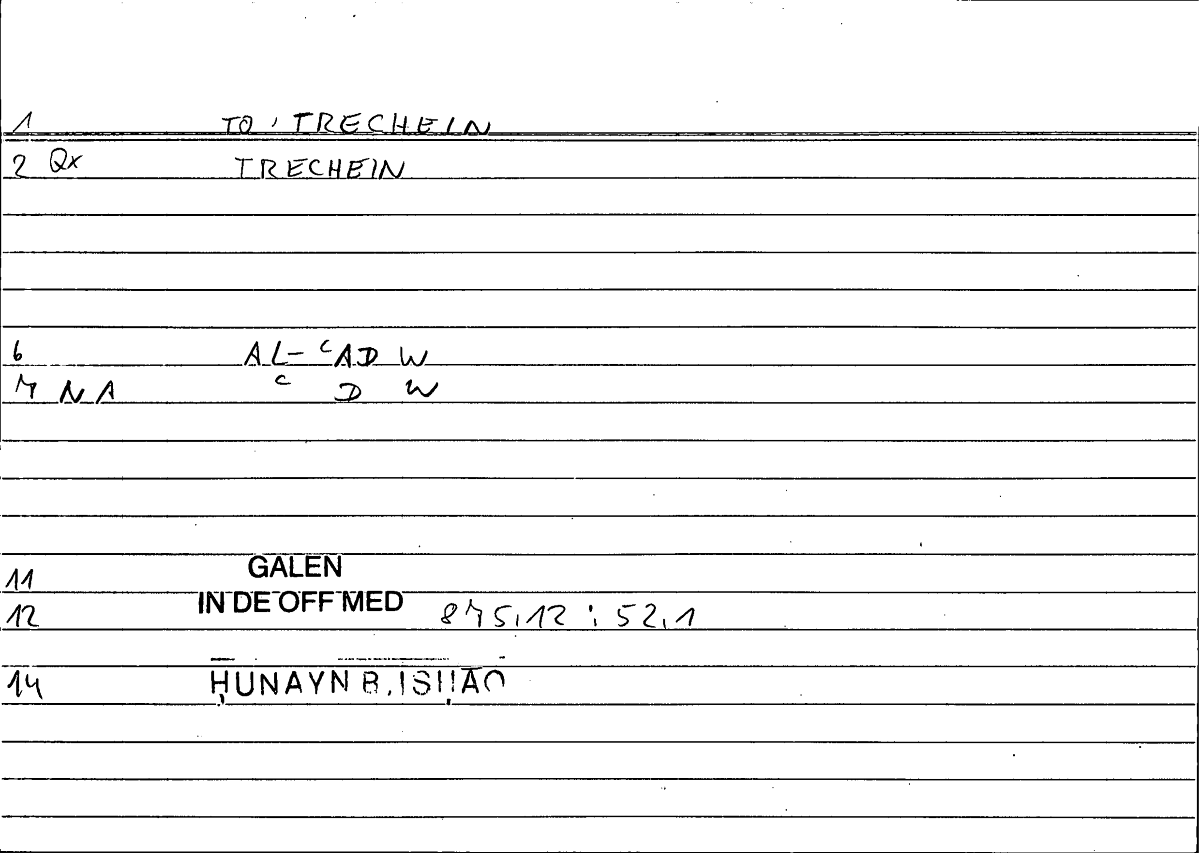 1 TO, TRECHEIN
2 Qx TRECHEIN
6 AL- ᶜAD W
7 NA ᶜ D W
11 GALEN
12 IN DE OFF MED 875,12 : 52,1
14 ḤUNAYN B. ISḤĀQ